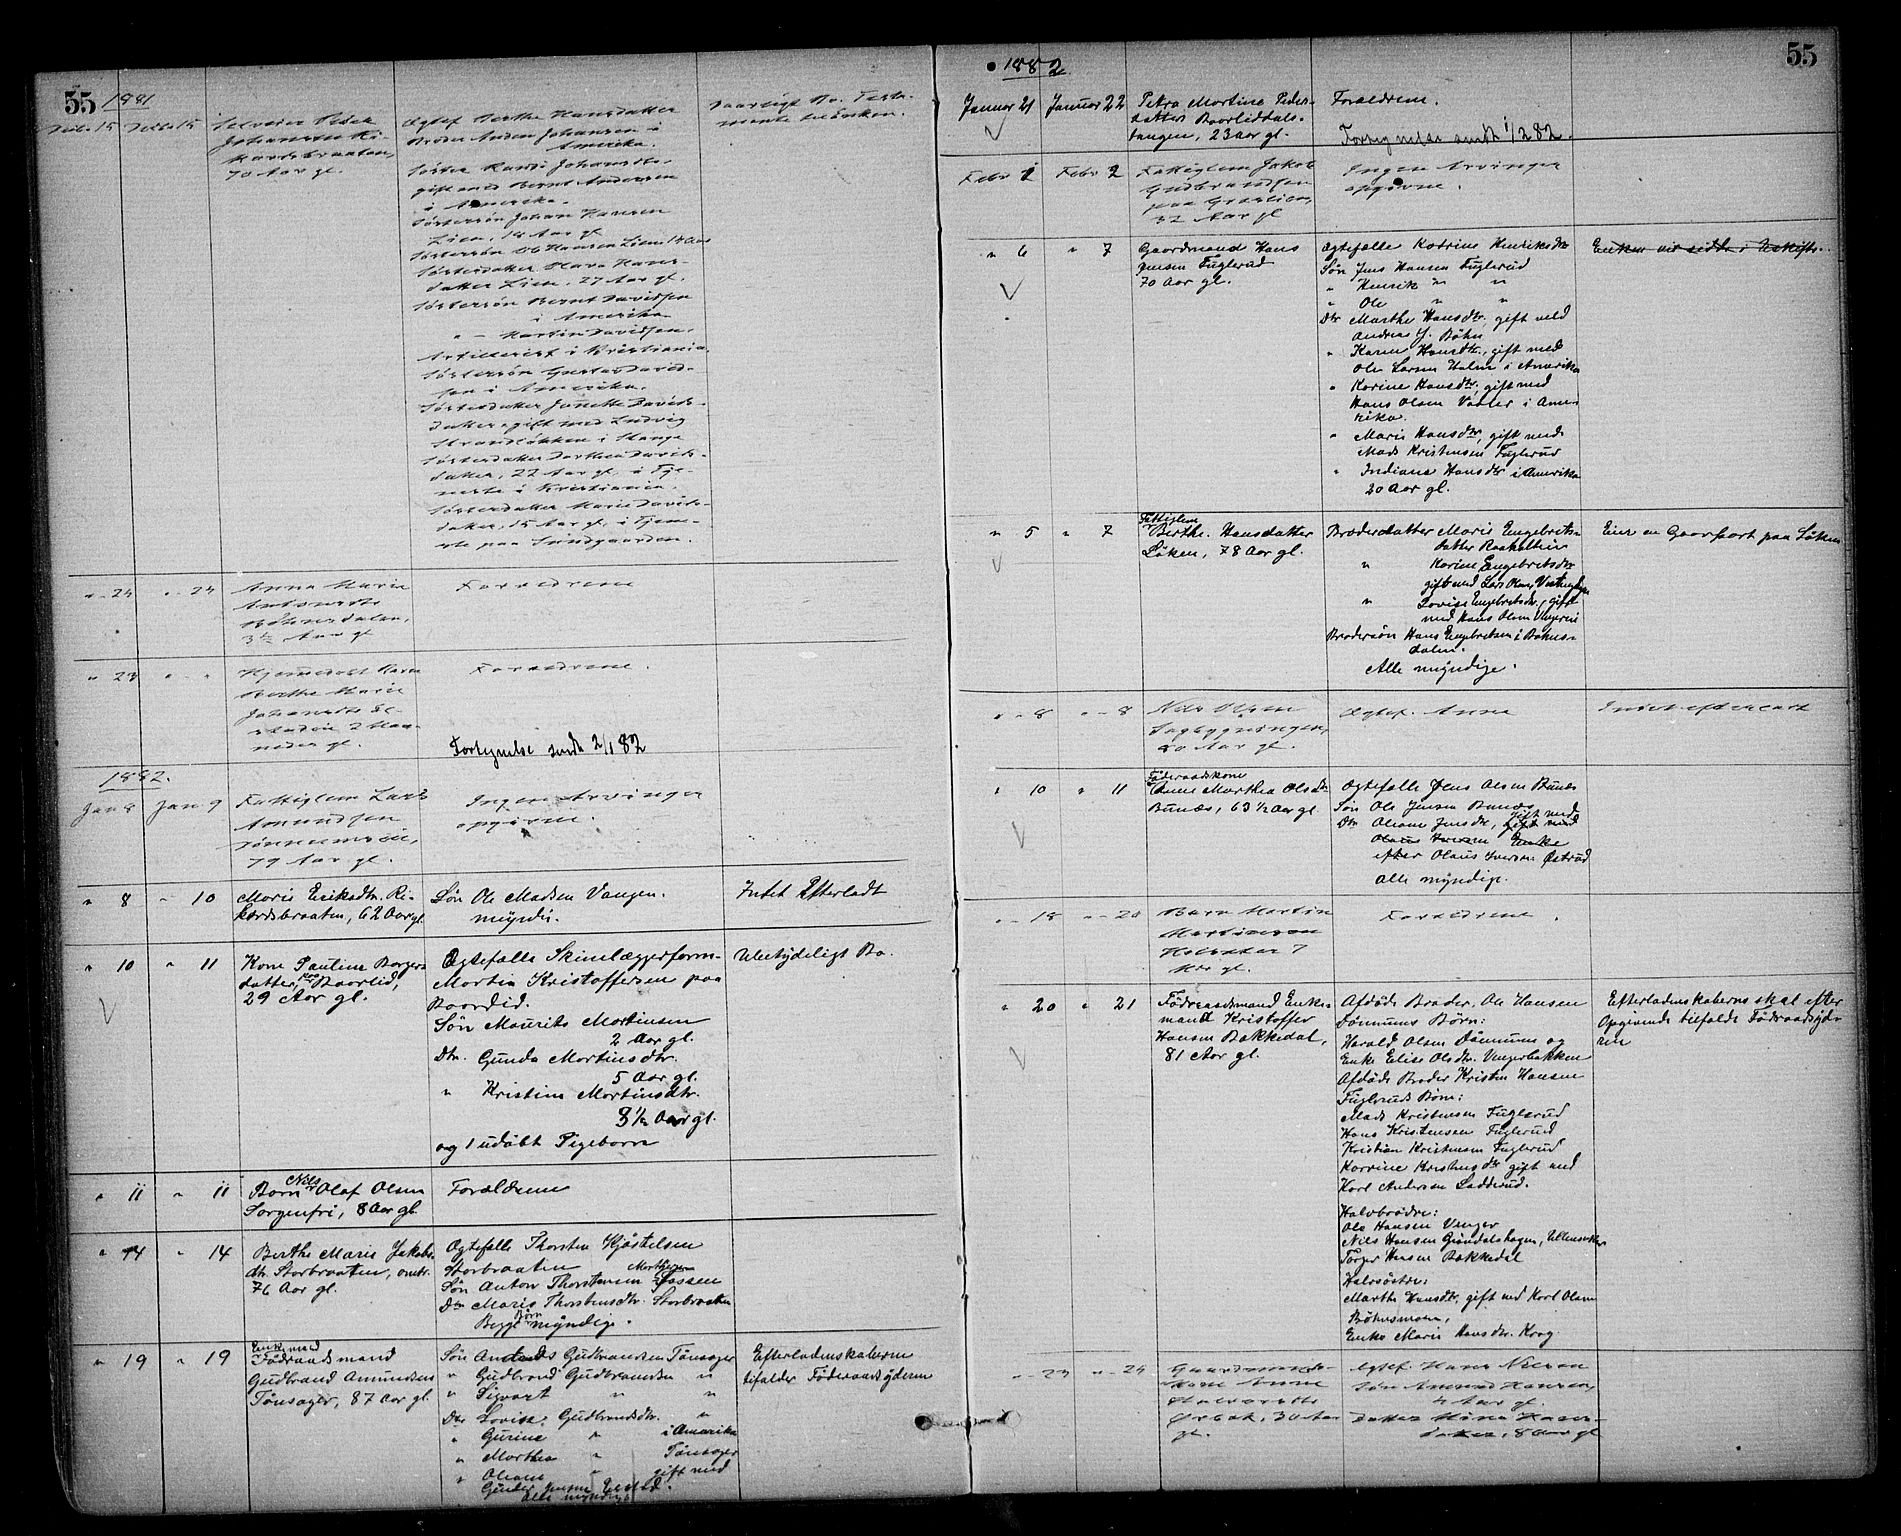 55 1881
Decbr 15 Decbr 15
Selveier Peder
Johannesen Ri-
kardsbraaten,
70 Aar gl.
Ægtef. Berthe Hansdatter
Broder Anders Johansen i
Amerika.
Søster Randi Johannesdtr.
gift med Bernt Andersen
i Amerika.
Søstersøn Johan Hansen
Lien, 18 Aar gl
Søstersøn Ole Hansen Lien 14 Aar
Søsterdatter Olava Hans-
datter Lien, 27 Aar gl.
Søstersøn Bernt Davidsen
i Amerika
" — Martin Davidsen,
Artillerist i Kristiania.
Søstersøn Gustav David-
sen i Amerika.
Søsterdatter Janette Davids-
datter gift med Ludvig
Strandløkken i Stange
Søsterdatter Dorthea Davids-
datter, 22 Aar gl. i Tje-
neste i Kristiania.
Søsterdatter Marie Davids-
datter, 15 Aar gl. i Tjene-
ste paa Sundgaarden.
Daarligt Bo. Testa-
mente
" - 24 " - 24
Anna Marie
Antonsdtr
Bøhnsdalen,
3½ Aar gl
Forældrene
" 29 " - "
Hjemmedøbt Barn
Berthe Marie
Johansdtr
2 Maa-
neder gl.
Forældrene.
Fortegnelse sendt 2/1 82
1882.
Jan 8 Jan 9
Fattiglem Lars
Amundsen
79 Aar gl.
Ingen Arvinger
opgivne.
" 8 " 10
Marie Eriksdtr. Ri-
kardsbraaten, 62 Aar gl.
Søn Ole Madsen Vangen.
myndig.
Intet Efterladt
" 10 " 11
Kone Pauline Borgers-
datter, paa Baarlid,
29 Aar gl.
Ægtefælle Skinelæggerform.
Martin Kristoffersen paa
Baardlid.
Søn Maurits Martinsen
2 Aar gl.
Dtr. Gunda Martinsdtr.
5 Aar gl.
" Kristine Martinsdtr.
8½ Aar gl.
og 1 udøbt Pigebarn
Ubetydeligt Bo.
" 11 " 11
Barn Nils Olaf Olsen
Sorgenfri, 8 Aar gl.
Forældrene
" 14 " 14
Berthe Marie Jakobs-
dtr. Storbraaten, omtr.
76 Aar gl.
Ægtefælle Thorsten Kjøstelsen
Storbraaten
Søn Anton Thorstensen Fossen
Dtr Marie Thorstensdtr. Storbraaten
Begge Børn myndige.
" 19 " 19
Enkemand
Føderaadsmand
Gudbrand Amundsen
Tønsager, 87 Aar gl.
Søn Anders Gudbrandsen Tønsager
" Gudbrand Gudbrandsen "
" Sigvart " "
Dtr Lovise Gudbrandsdtr. "
" Gurine " i Amerika
" Marthea " Tønsager
" Oleane " gift med
Alle myndige
Efterladenskaberne
tilfalder Føderaadsyderen
55
1882
Januar 21 Januar 22
Petra Martine Peders-
datter Baarliddals-
tangen, 23 Aar gl.
Forældrene.
Fortegnelse sendt 1/2 82.
Febr 1 Febr 2
Fattiglem Jakob
Gudbrandsen
paa
32 Aar gl
Ingen Arvinger
opgivne.
" 6 " 7
Gaardmand Hans
Jensen Fuglerud
70 Aar gl.
Ægtefælle Katrine Henriksdtr
Søn Jens Hansen Fuglerud
" Henrik " "
" Ole " "
Dtr Marthe Hansdtr, gift med
Andreas J. Bøhn
" Karen Hansdtr, gift med
Ole Larsen Holm i Amerika
" Karine Hansdtr, gift med
Hans Olsen Vatter i Ame-
rika.
" Marie Hansdtr, gift med
Mads Kristensen Fuglerud
" Indiana Hansdtr i Amerika
20 Aar gl.
Enken vil sidde i Uskifte.
" 5 " 7
Fattiglem
Berthe Hansdatter
Løken, 78 Aar gl.
Broderdatter Marie Engebrets-
datter Raaholtlien
" Karine Engebretsdtr
gift med Lars Olsen
" Lovise Engebretsdtr, gift
med Hans Olsen
Brodersøn Hans Engebretsen i Bøhns-
dalen.
Alle myndige.
Eier en Gaardpart paa Løken
" - 8 " - 8
Nils Olsen
Sagbygningen,
80 Aar gl.
Ægtef. Anne
Intet efterladt
" 10 " 11
Føderaadskone
Anne Marthea Olsdtr
Bunæs, 63½ Aar gl.
Ægtefælle Jens Olsen Bunæs
Søn Ole Jensen Bunæs
Dtr Oleane Jensdtr, gift med
Olaus Iversen Enke
efter Olaus Iversen Østrud
Alle myndige.
" - 18 " - 20
Barn Martin
Martinsen
7
Mdr gl.
Forældrene.
" 20 " 21
Føderaadsmand Enke-
mand Kristoffer
Hansen Bakkedal,
81 Aar gl.
Afdøde Broder, Ole Hansen
Dønnums Børn:
Harald Olsen Dønnum og
Enke Elise Olsdtr. Vengerbakken
Afdøde Broder Kristen Hansen
Fugleruds Børn:
Mads Kristensen Fuglerud
Hans Kristensen Fuglerud
Kristian Kristensen Fuglerud
Karine Kristensdtr gift med
Karl Andersen Ladderud.
Halvbrødre:
Ole Hansen Venger
Nils Hansen Grøndalshagen, Ullensaker
Torger Hansen Bakkedal
Halvsøstre:
Marthe Hansdtr, gift med Karl Olsen
Bøhnsmoen,
Enke Marie Hansdtr. Krog
Efterladenskaberne skal efter
Opgivende tilfalde Føderaadsyde-
ren
" - 23 " - 24
Gaardmands-
kone Anne
Halvorsdtr
30 Aar
gl.
Ægtef. Hans Nilsen
Søn Amund Hansen,
4 Aar gl.
Datter Mina Hans-
datter, 8 Aar gl